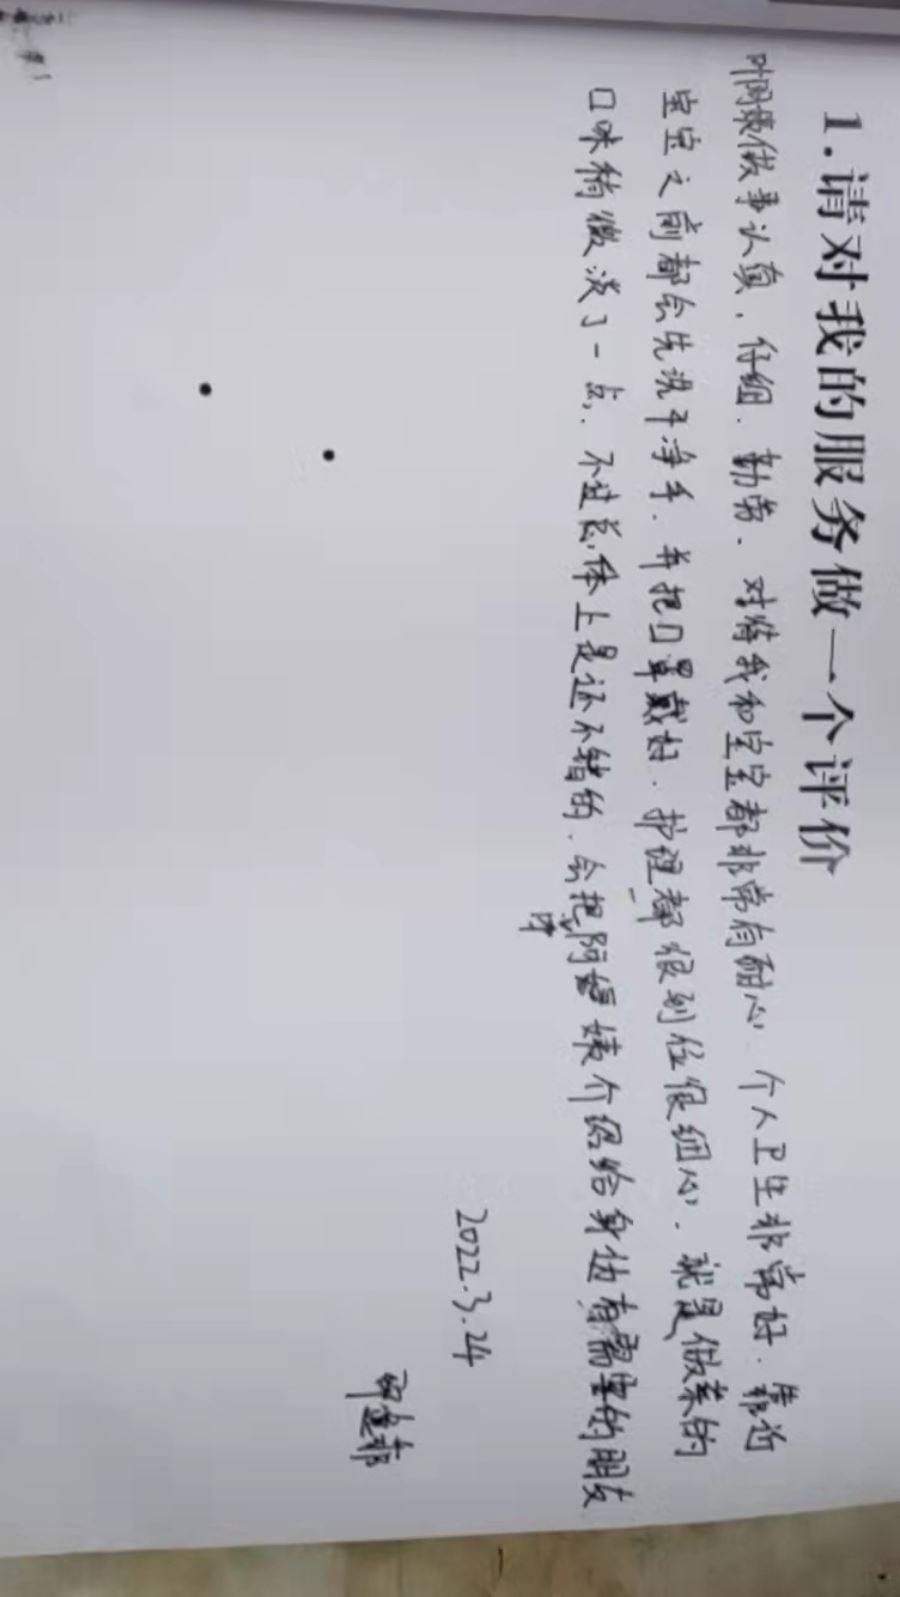 1.请对我的服务做一个评价
叶阿姨做事认真、仔细、勤劳、对待我和宝宝都非常有耐心 个人卫生非常好.靠近
宝宝之前都会先洗干净手.并把口罩戴好.护理都很到位很细心.就是做菜的
口味稍微淡了一点.不过总体上是还不错的.会把叶阿姨介绍给身边有需要的朋友
2022.3.24